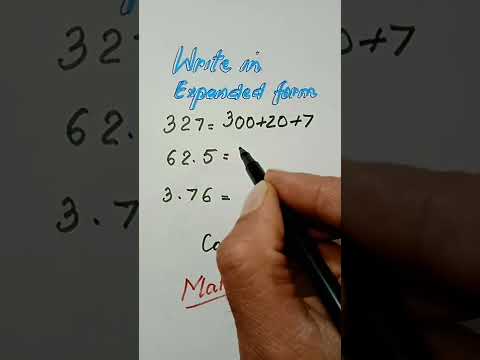 Write in
Expanded form
327 = 300+20+7
62.5 =
3.76 =